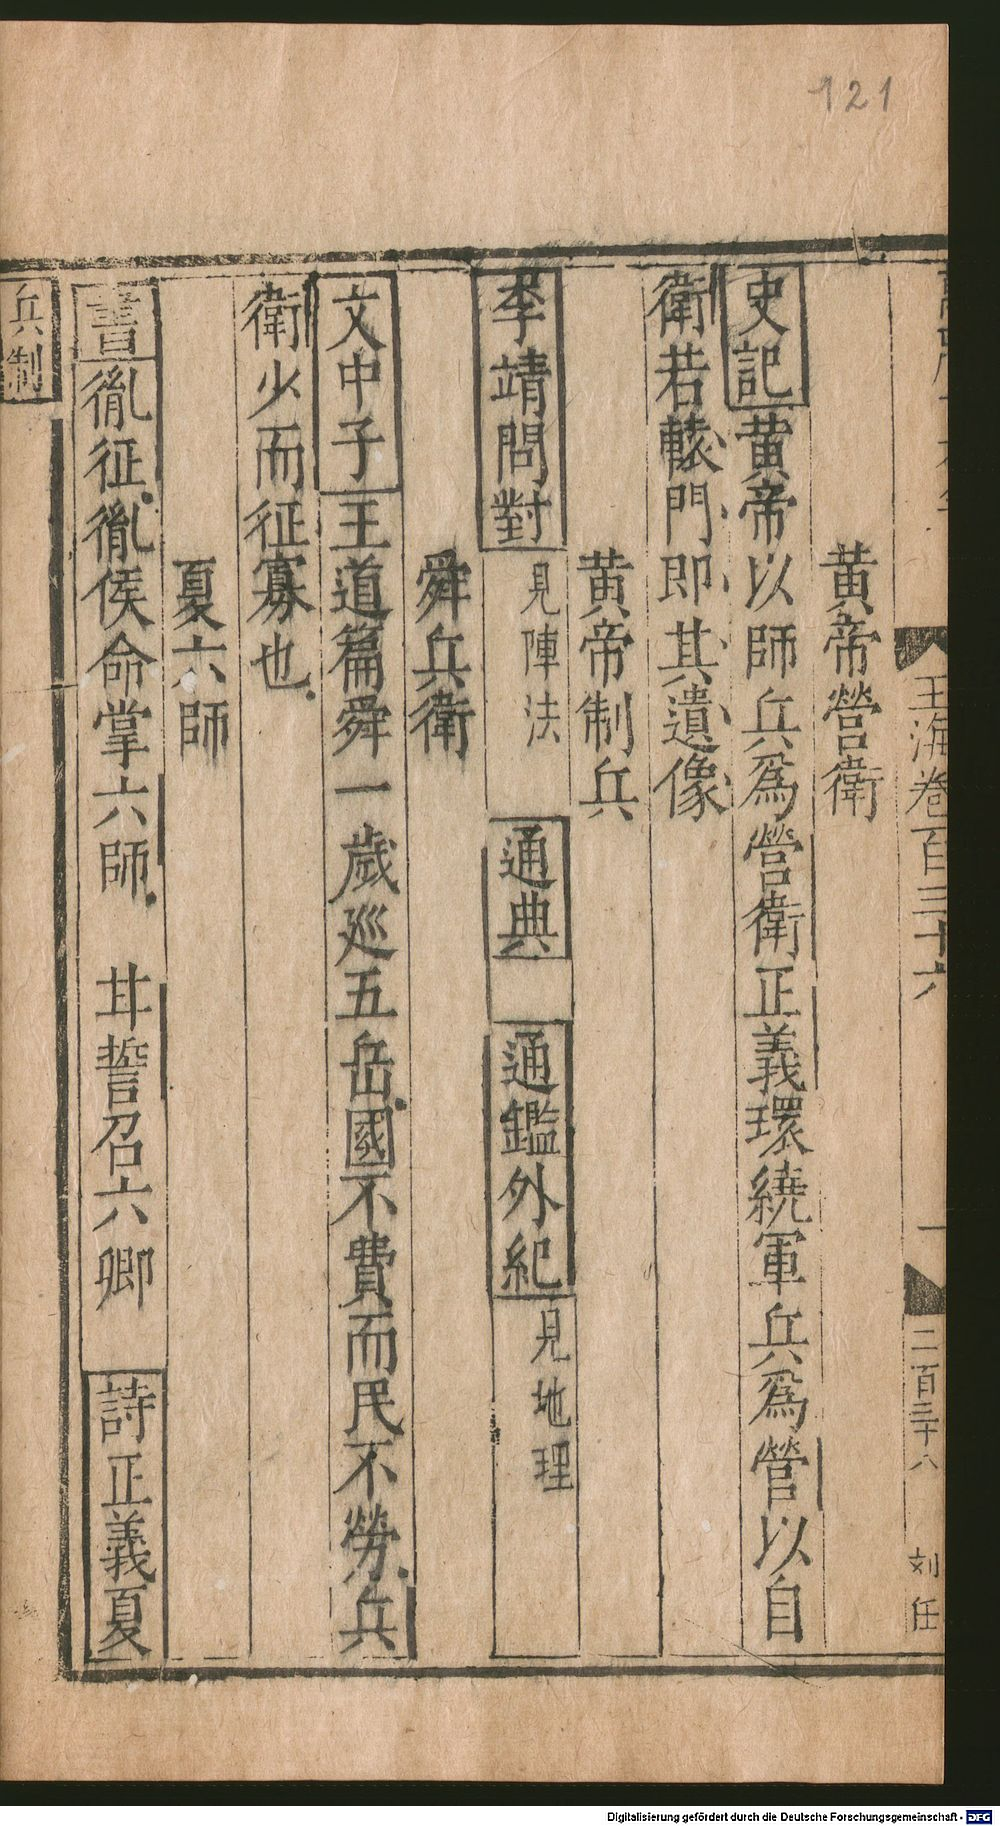 121
玉海卷百三十六
一
二百三十八
刘任
黄帝營衛
史記黄帝以師兵爲營衛正義環繞軍兵爲營以自
衛若轅門即其遺像
黄帝制兵
李靖問對見陣法 通典 通鑑外紀見地理
舜兵衛
文中子王道篇舜一歲廵五岳國不費而民不勞兵
衛少而征寡也
夏六師
書胤征胤侯命掌六師 甘誓召六卿 詩正義夏
兵制
Digitalisierung gefördert durch die Deutsche Forschungsgemeinschaft - DFG